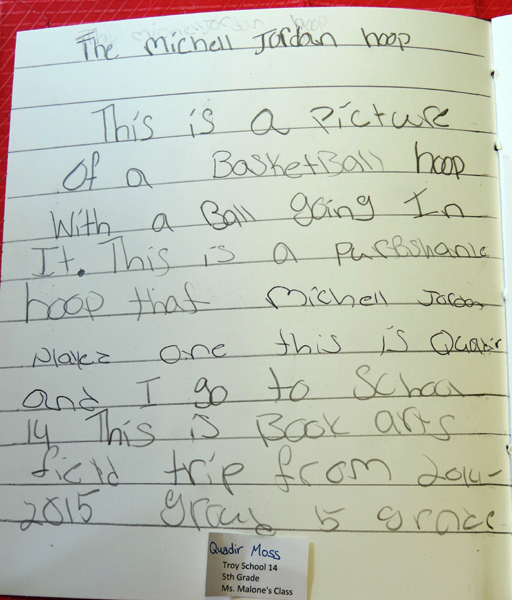 The Michell Jordan hoop
This is a Picture
Of a BasketBall hoop
With a Ball going In
It. This is a
hoop that Michell Jordan
Playez one this is Quadir
and I go to School
14 This is Book arts
field trip from 2014-
2015 5 grade
Quadir Moss
Troy School 14
5th Grade
Ms. Malone's Class